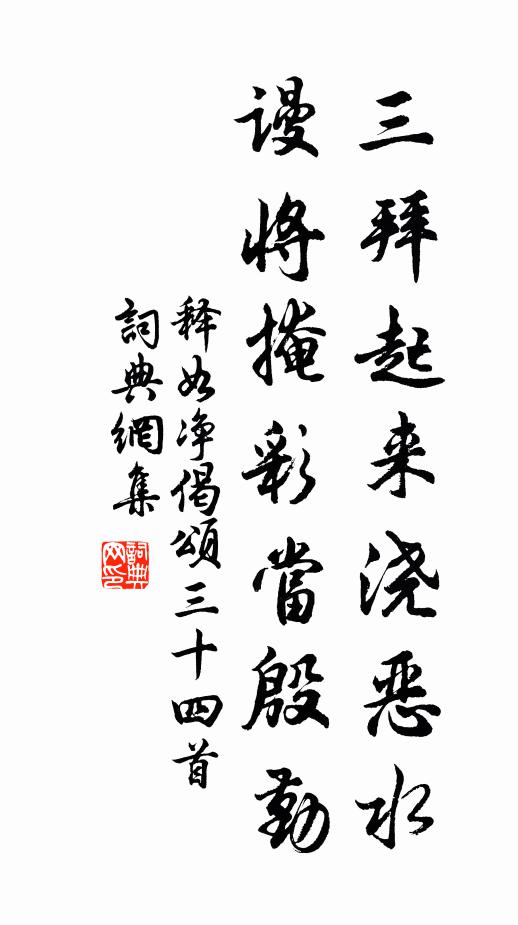 三拜起来浇恶水
谩將掩彩當殷勤
释如净偈頌三十四首
詞典網集
詞典网印